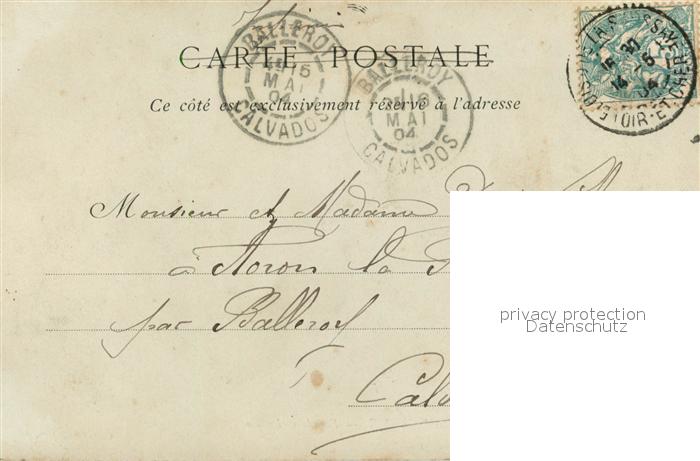 CARTE POSTALE
Ce côté est exclusivement réservé à l'adresse
BALLEROY
15
MAI
04
CALVADOS
BALLEROY
16
MAI
04
CALVADOS
LOIR-ET-CHER
Monsieur et Madame
à Noron la
par Balleroy
privacy protection
Datenschutz